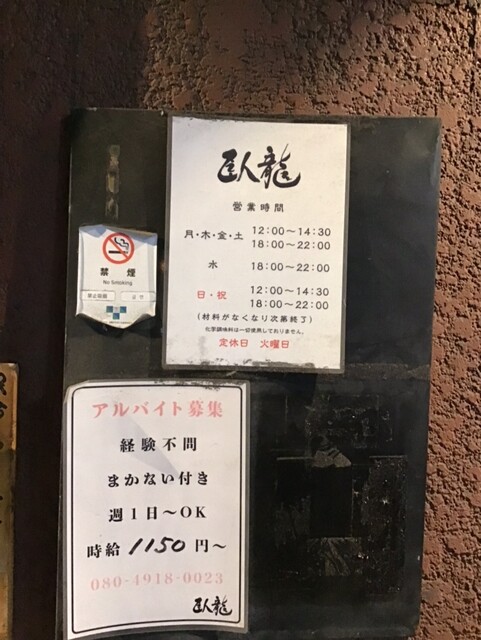 臥龍
営業時間
月・木・金・土 12:00～14:30
18:00～22:00
水 18:00～22:00
日・祝 12:00～14:30
18:00～22:00
(材料がなくなり次第終了)
化学調味料は一切使用しておりません。
定休日 火曜日
禁煙
No Smoking
アルバイト募集
経験不問
まかない付き
週1日～OK
時給 1150 円～
080-4918-0023
臥龍